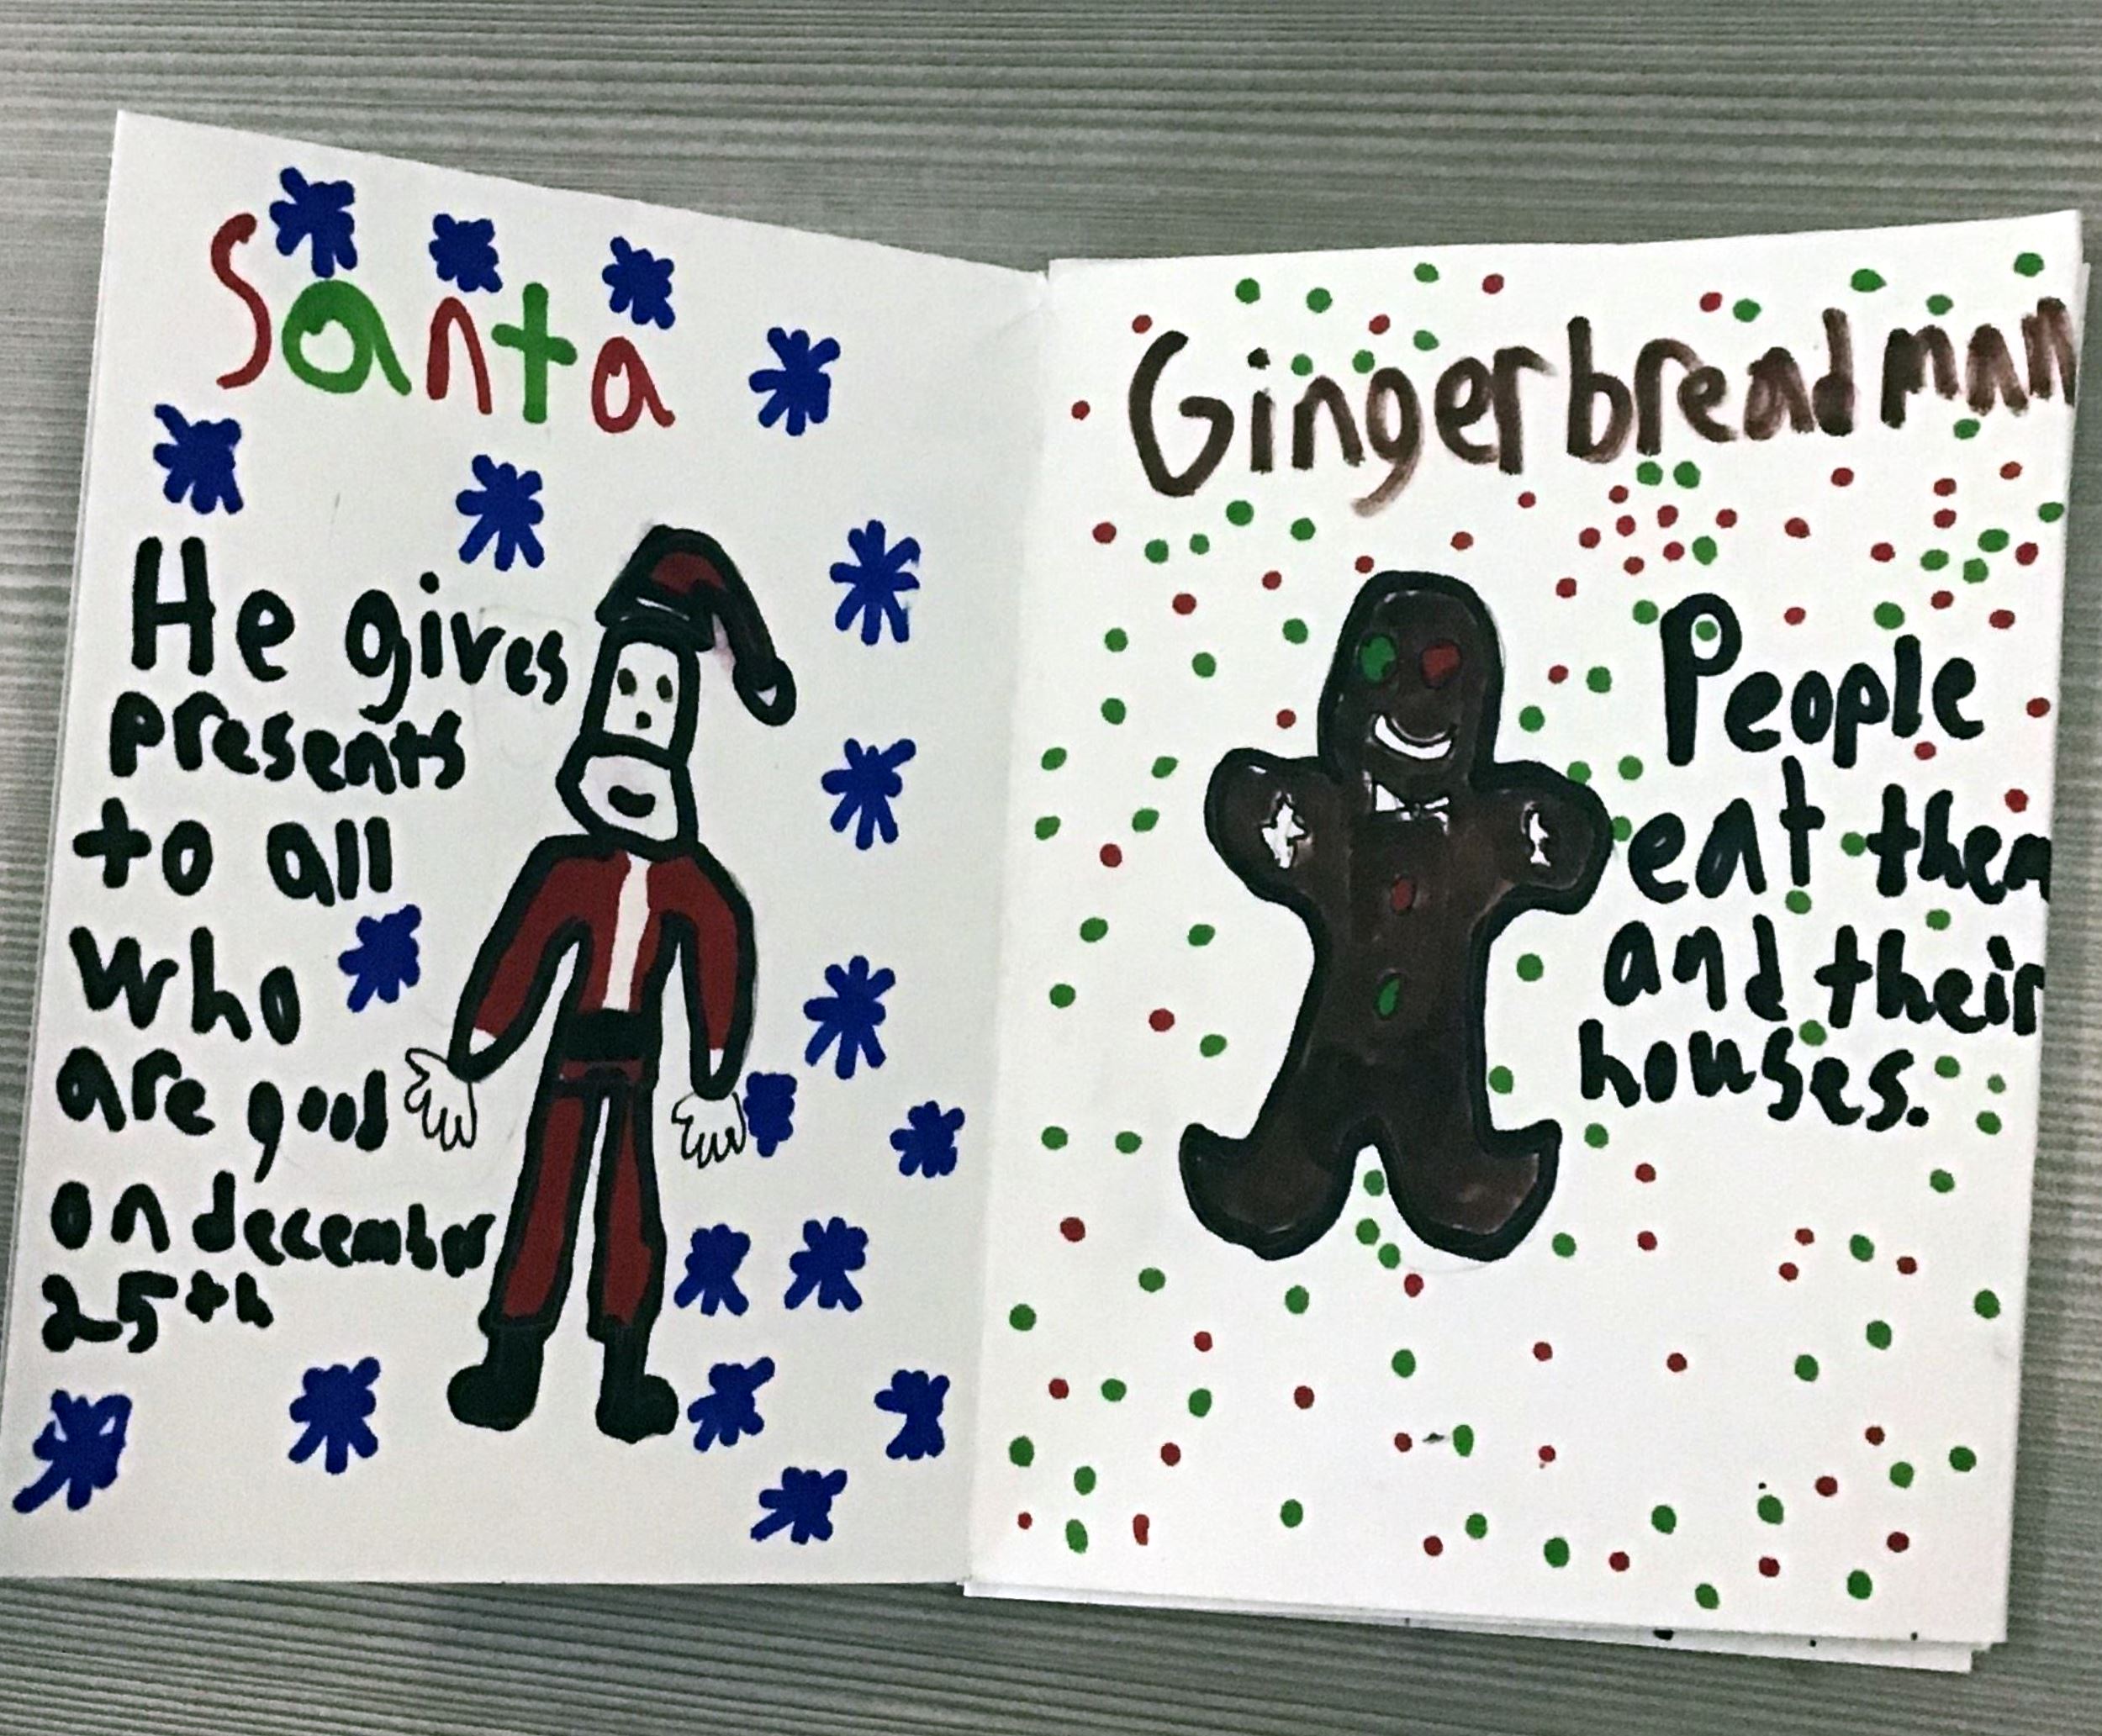 Santa
He gives
presents
to all
who
are good
on december
25th
Gingerbread man
People
eat them
and their
houses.